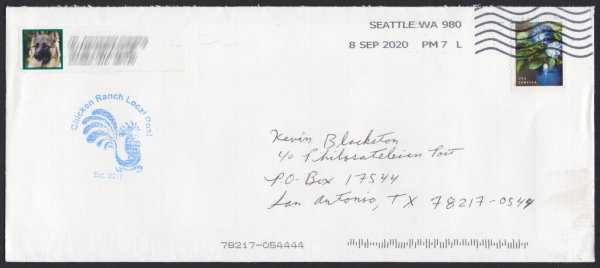 SEATTLE WA 980
8 SEP 2020 PM 7 L
USA
FOREVER
Chicken Ranch Local Post
Est. 2017
Kevin Blackston
c/o Philosateleian Post
P.O. Box 17544
San Antonio, TX 78217-0544
78217-054444